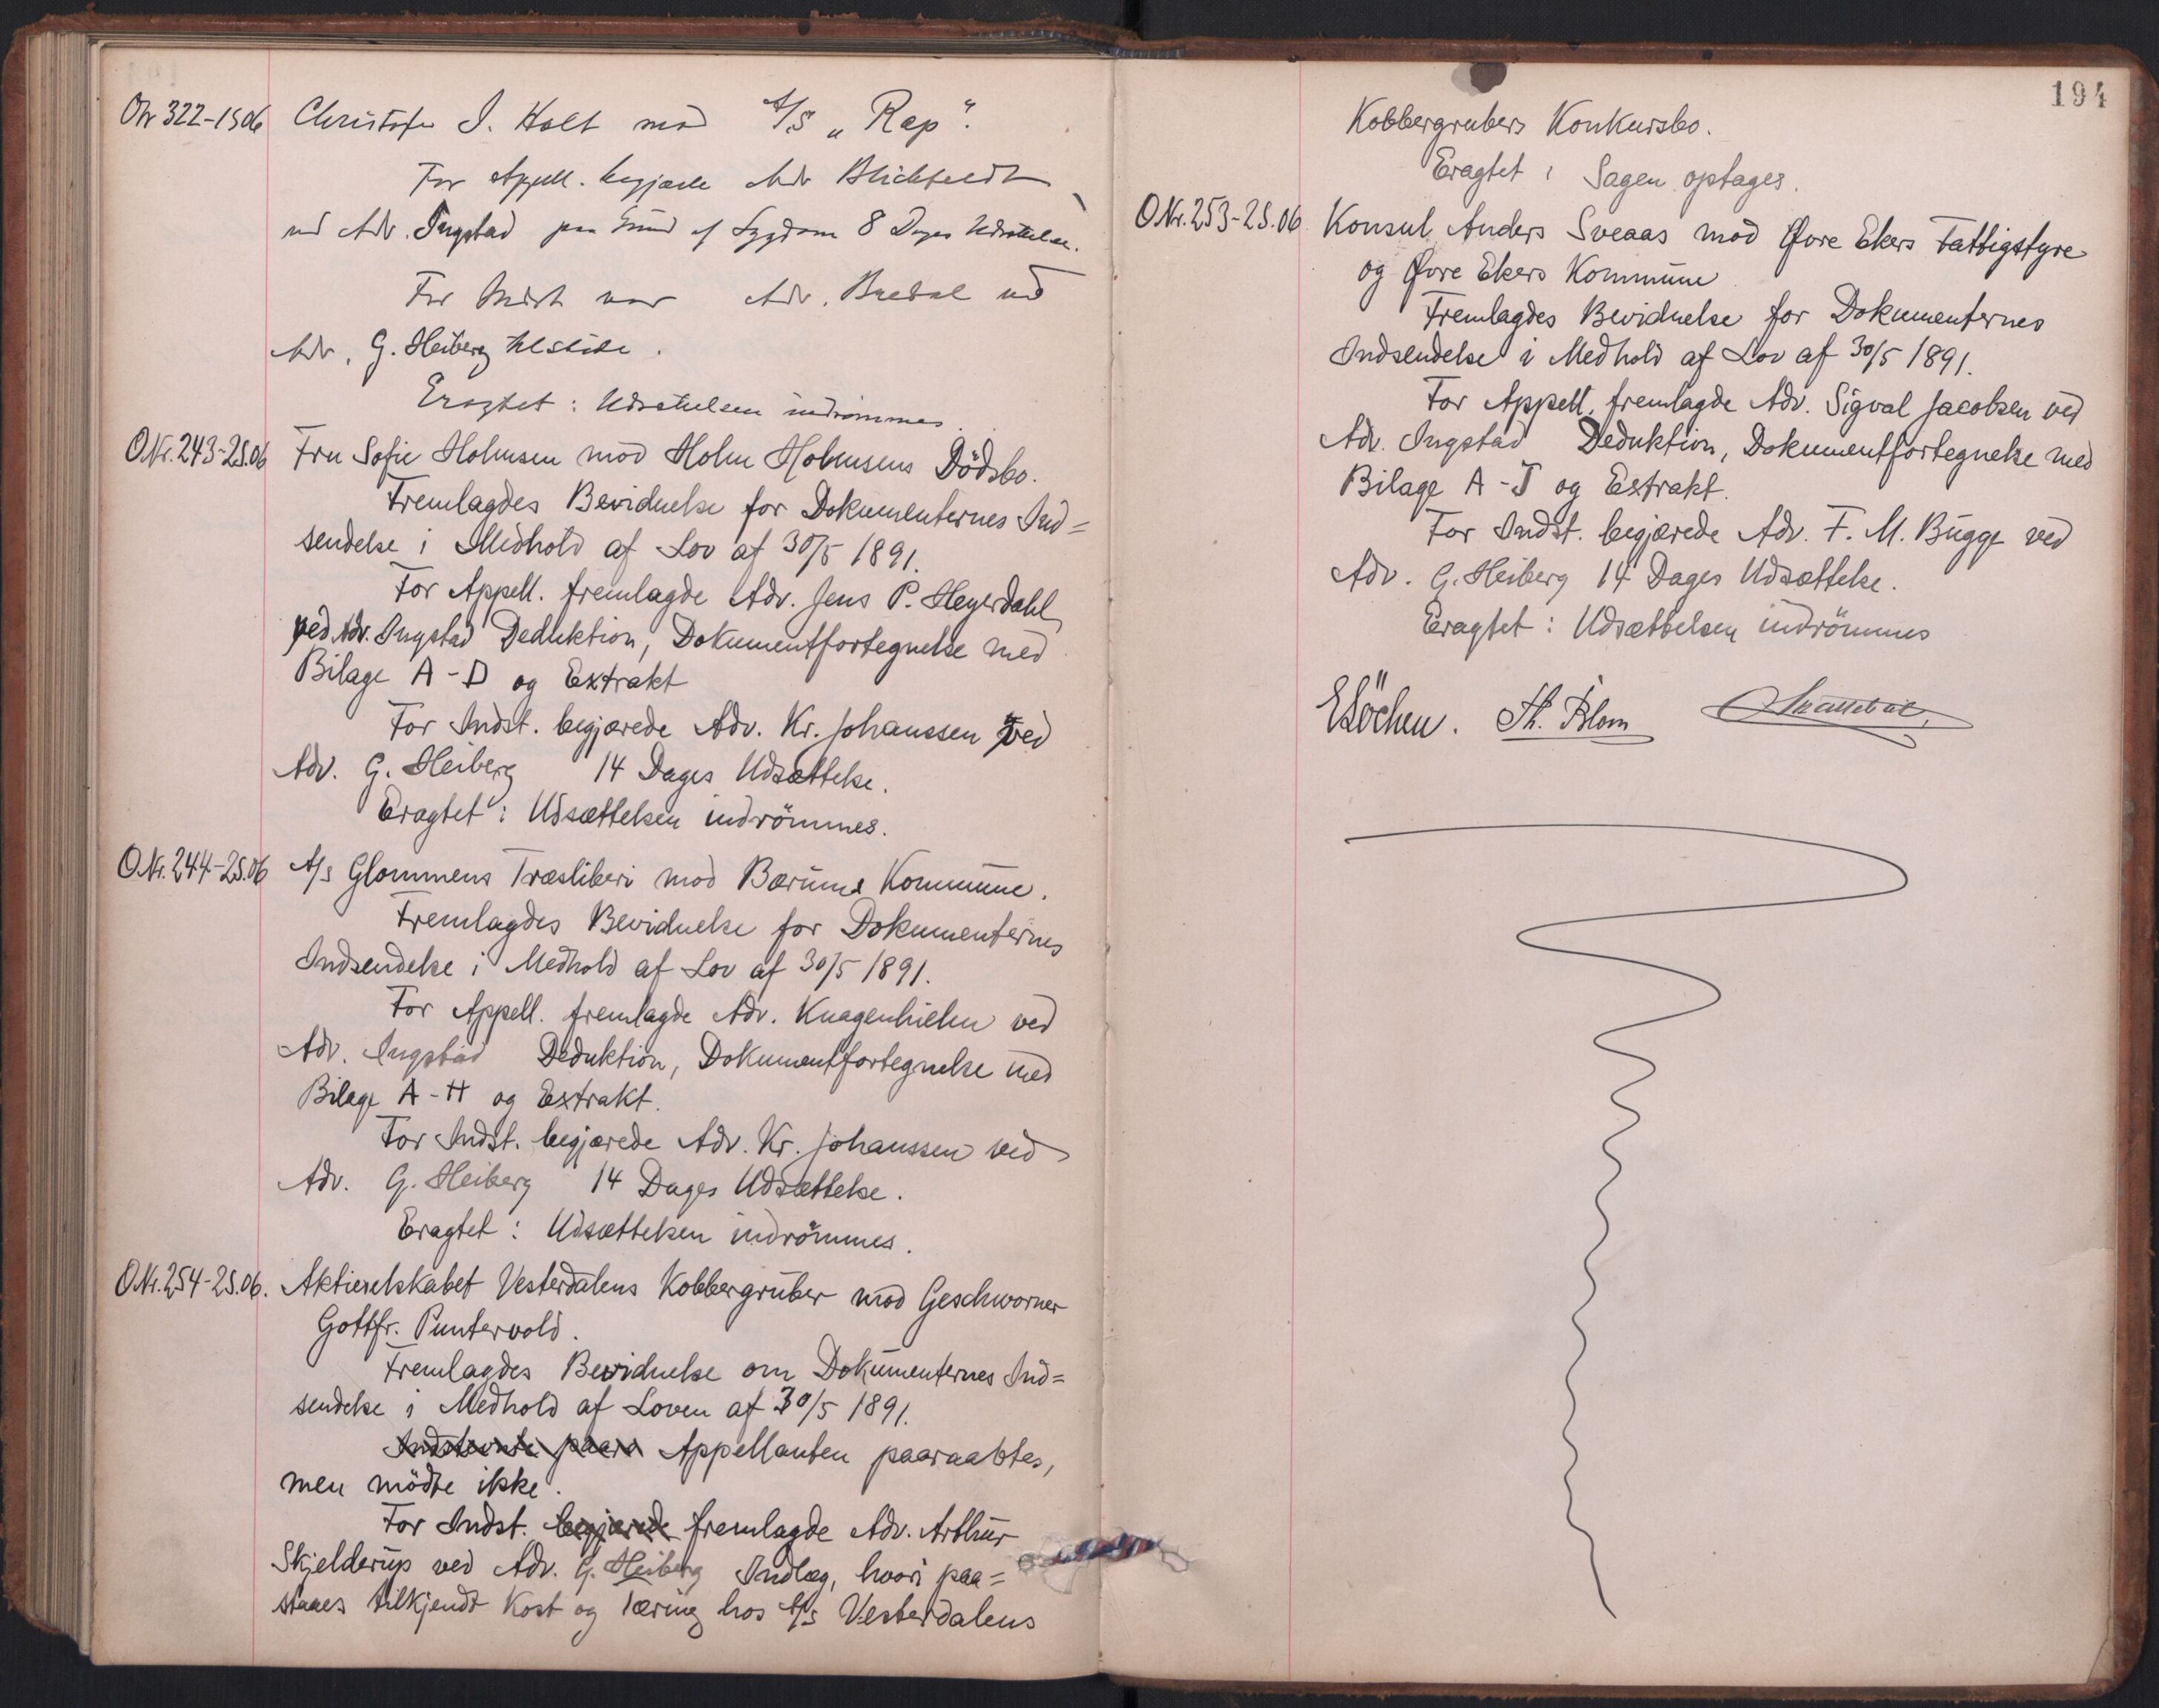 ONr 322-1S06 Christofer I. Holt mod A/S „Rap".
For Appell. begjærte Adv Blichfeldt
ved Adv. Ingstad paa Grund af Sygdom 8 Dages Udsættelse.
For Indst var Adv. Bredal ved
Adv. G. Heiberg tilstede.
Eragtet: Udsættelsen indrømmes.
O.Nr.243-2S.06 Fru Sofie Holmsen mod Holm Holmsens Dödsbo.
Fremlagdes Bevidnelse for Dokumenternes Ind=
sendelse i Medhold af Lov af 30/5 1891.
For Appell. fremlagde Adv. Jens P. Heyerdahl
ved Adv. Ingstad Deduktion, Dokumentfortegnelse med
Bilage A-D og Extrakt
For Indst. begjærede Adv. Kr. Johanssen ved
Adv. G. Heiberg 14 Dages Udsættelse.
Eragtet: Udsættelsen indrömmes.
O.Nr.244-2S.06 A/s Glommens Træsliberi mod Bærums Kommune.
Fremlagdes Bevidnelse for Dokumenternes
Indsendelse i Medhold af Lov af 30/5 1891.
For Appell. fremlagde Adv. Knagenhielm ved
Adv. Ingstad Deduktion, Dokumentfortegnelse med
Bilage A-H og Extrakt.
For Indst. begjærede Adv. Kr. Johanssen ved
Adv. G. Heiberg 14 Dages Udsættelse.
Eragtet: Udsættelsen indrömmes.
O.Nr.254-2S.06. Aktieselskabet Vesterdalens Kobbergruber mod Geschworner
Gottfr. Puntervold.
Fremlagdes Bevidnelse om Dokumenternes Ind=
sendelse i Medhold af Loven af 30/5 1891.
Indstevnte paara Appellanten paaraabtes,
men mödte ikke.
For Indst. begjærede fremlagde Adv. Arthur
Skjelderup ved Adv. G. Heiberg Indlæg, hvori paa=
staaes tilkjendt Kost og Tæring hos A/s Vesterdalens
194
Kobbergrubers Konkursbo.
Eragtet: Sagen optages.
O.Nr.253-2S.06 Konsul Anders Sveaas mod Øvre Ekers Fattigstyre
og Øvre Ekers Kommune
Fremlagdes Bevidnelse for Dokumenternes
Indsendelse i Medhold af Lov af 30/5 1891.
For Appell. fremlagde Adv. Sigval Jacobsen ved
Adv. Ingstad Deduktion, Dokumentfortegnelse med
Bilage A-J og Extrakt.
For Indst. begjærede Adv. F. M. Bugge ved
Adv. G. Heiberg 14 Dages Udsættelse.
Eragtet: Udsættelsen indrömmes
E Löchen. Th. Blom